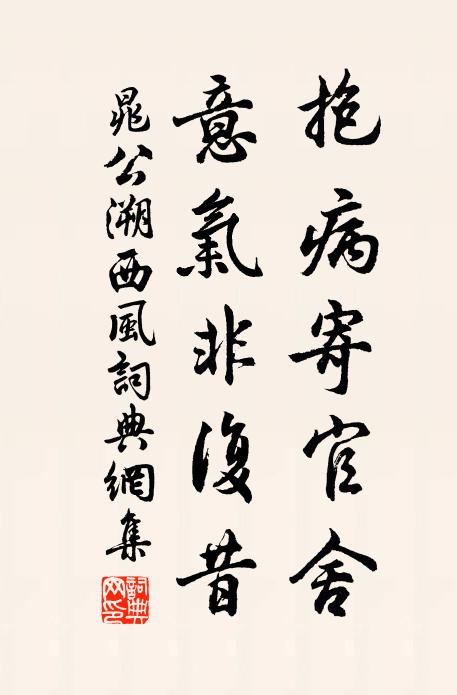 抱病寄官舍
意氣非復昔
晁公溯西風詞典網集
詞典
网印